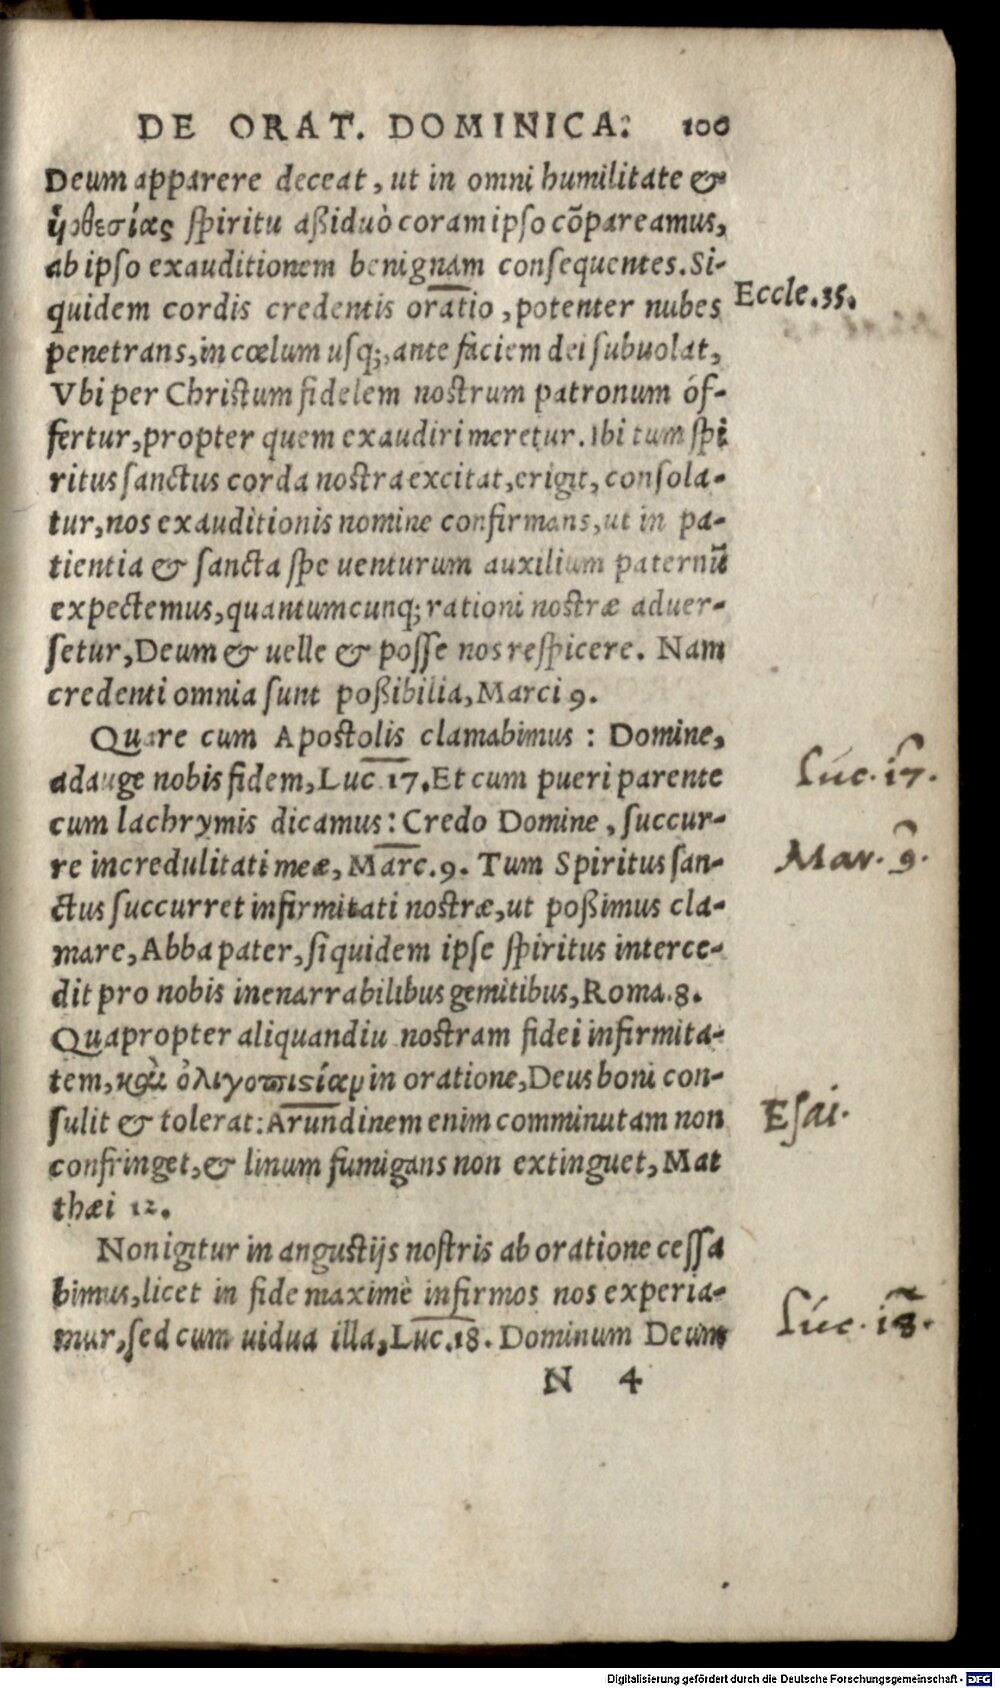 DE ORAT. DOMINICA: 100
Deum apparere deceat, ut in omni humilitate &
ὑοθεσίας ſpiritu aßiduò coram ipſo cõpareamus,
ab ipſo exauditionem benignam conſequentes. Si-
quidem cordis credentis oratio, potenter nubes
Eccle.35.
penetrans, in cœlum uſq;, ante faciem dei ſubuolat,
Vbi per Chriſtum fidelem noſtrum patronum of-
fertur, propter quem exaudiri meretur. Ibi tum ſpi
ritus ſanctus corda noſtra excitat, erigit, conſola-
tur, nos exauditionis nomine confirmans, ut in pa-
tientia & ſancta ſpe uenturum auxilium paternũ
expectemus, quantumcunq; rationi noſtræ aduer-
ſetur, Deum & uelle & poſſe nos reſpicere. Nam
credenti omnia ſunt poßibilia, Marci 9.
Quare cum Apoſtolis clamabimus: Domine,
adauge nobis fidem, Luc. 17. Et cum pueri parente
Luc. 17.
cum lachrymis dicamus: Credo Domine, ſuccur-
re incredulitati meæ, Marc. 9. Tum Spiritus ſan-
Mar. 9.
ctus ſuccurret infirmitati noſtræ, ut poßimus cla-
mare, Abba pater, ſiquidem ipſe ſpiritus interce-
dit pro nobis inenarrabilibus gemitibus, Roma.8.
Quapropter aliquandiu noſtram fidei infirmita-
tem, καὶ ὀλιγοπιστίαν in oratione, Deus boni con-
ſulit & tolerat: Arundinem enim comminutam non
Eſai.
confringet, & linum fumigans non extinguet, Mat
thæi 12.
Non igitur in anguſtijs noſtris ab oratione ceſſa
bimus, licet in fide maximè infirmos nos experia-
mur, ſed cum uidua illa, Luc.18. Dominum Deum
Luc. 18.
N 4
Digitalisierung gefördert durch die Deutsche Forschungsgemeinschaft - DFG